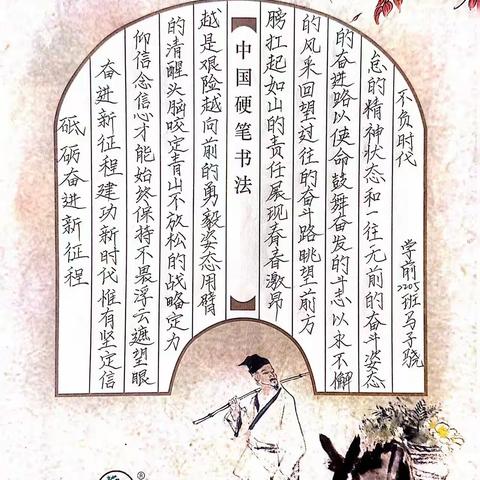 砥砺奋进新征程
奋进新征程建功新时代惟有坚定信
仰信念信心才能始终保持不畏浮云遮望眼
的清醒头脑咬定青山不放松的战略定力
越是艰险越向前的勇毅姿态用臂
中国硬笔书法
膀扛起如山的责任展现春春激昂
的风采回望过往的奋斗路眺望前方
的奋进路以使命鼓舞奋发的斗志以永不懈
怠的精神状态和一往无前的奋斗姿态
不负时代
学前2205班马子骁
®